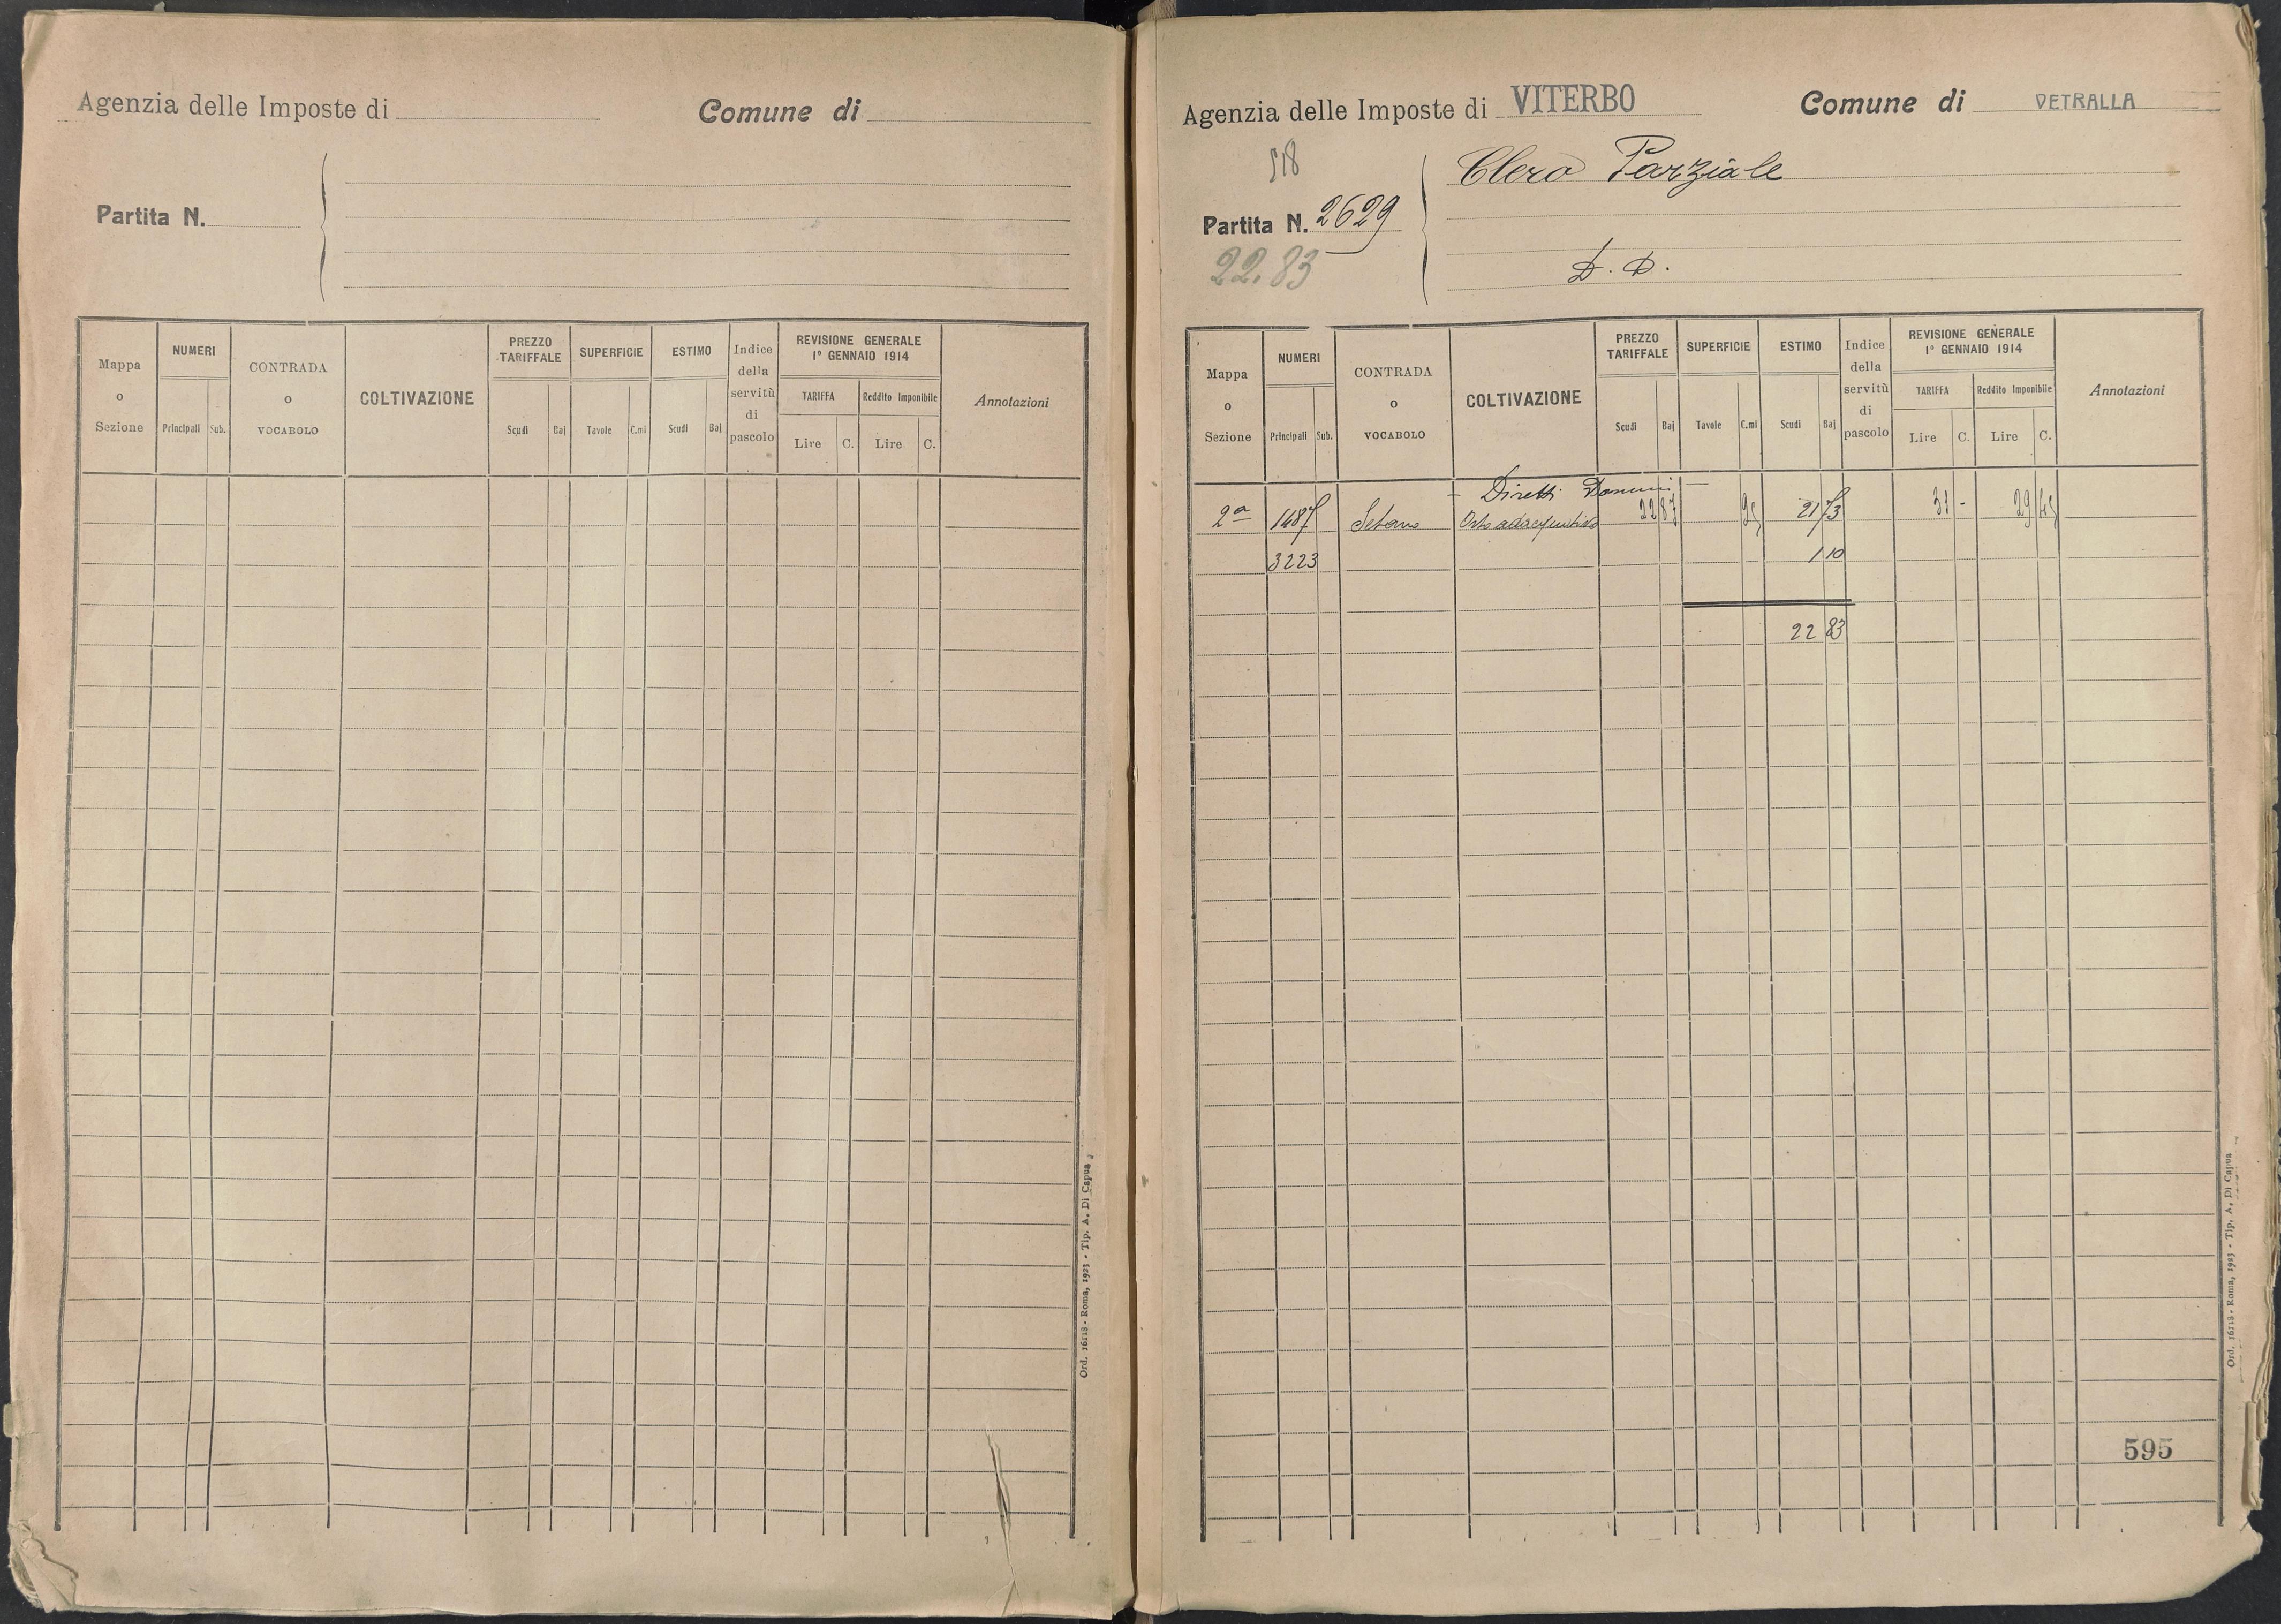 Agenzia delle Imposte di
Comune di
Partita N.
Mappa o Sezione
NUMERI
Principali
Sub.
CONTRADA o VOCABOLO
COLTIVAZIONE
PREZZO TARIFFALE
Scudi
Baj
SUPERFICIE
Tavole
C.mi
ESTIMO
Scudi
Baj
Indice della servitù di pascolo
REVISIONE GENERALE
1° GENNAIO 1914
TARIFFA
Reddito Imponibile
Lire C. Lire C.
Annotazioni
Ord. 16118 - Roma, 1923 - Tip. A. Di Capua
Agenzia delle Imposte di VITERBO
Comune di VETRALLA
518
Clero Parziale
Partita N. 2629
22.83
D. D.
Mappa o Sezione
NUMERI
Principali
Sub.
CONTRADA o VOCABOLO
COLTIVAZIONE
PREZZO TARIFFALE
Scudi
Baj
SUPERFICIE
Tavole
C.mi
ESTIMO
Scudi
Baj
Indice della servitù di pascolo
REVISIONE GENERALE
1° GENNAIO 1914
TARIFFA
Reddito Imponibile
Lire C. Lire C.
Annotazioni
Diretti Domini
2a 1487 Orto adacquativo 22 87 95 21 73 31 - 29 45
3223 1 10
22 83
595
Ord. 16118 - Roma, 1923 - Tip. A. Di Capua